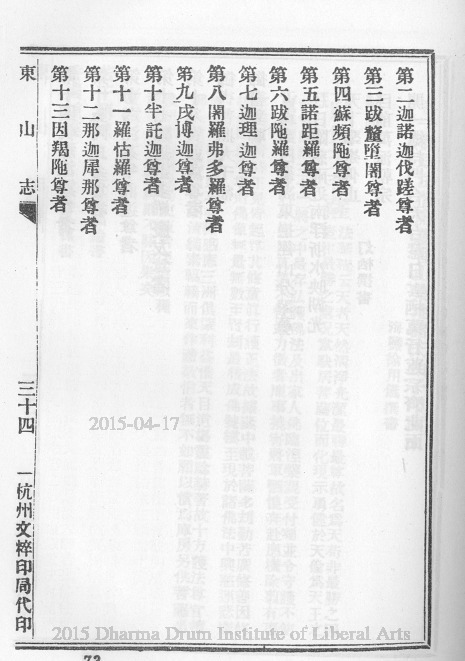 第二迦諾迦伐蹉尊者
第三跋釐墮闍尊者
第四蘇頻陁尊者
第五諾距羅尊者
第六跋陁羅尊者
第七迦理迦尊者
第八闍羅弗多羅尊者
第九戌博迦尊者
第十半託迦尊者
第十一羅怙羅尊者
第十二那迦犀那尊者
第十三因羯陁尊者
東山志
三十四
杭州文粹印局代印
2015-04-17
2015 Dharma Drum Institute of Liberal Arts
73